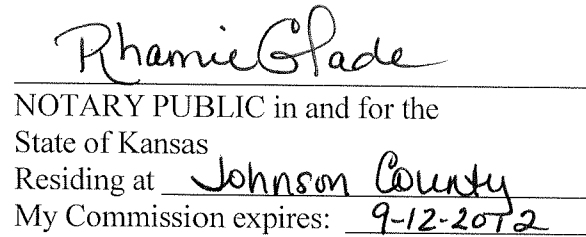 Rhamie Glade
NOTARY PUBLIC in and for the
State of Kansas
Residing at Johnson County
My Commission expires: 9-12-2012